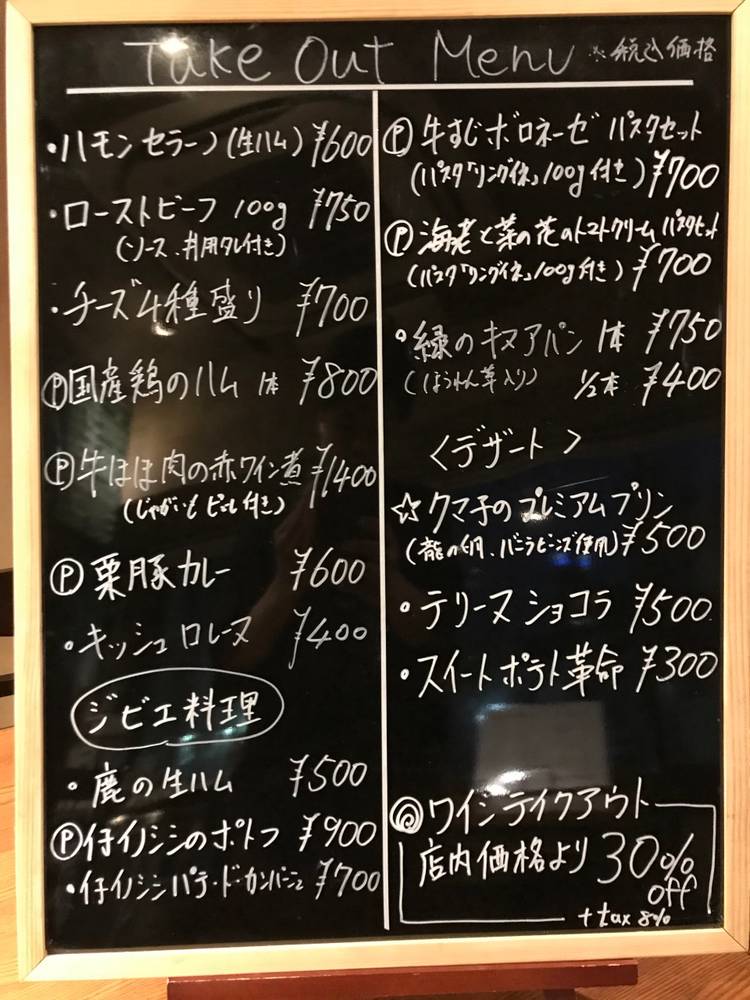 Take Out Menu ※税込価格
・ハモンセラーノ(生ハム) ¥600
・ローストビーフ 100g ¥750
(ソース、丼用タレ付き)
・チーズ4種盛り ¥700
Ⓟ国産鶏のハム 1本 ¥800
Ⓟ牛ほほ肉の赤ワイン煮 ¥1400
(じゃがいもピュレ付き)
Ⓟ栗豚カレー ¥600
・キッシュロレーヌ ¥400
ジビエ料理
・鹿の生ハム ¥500
Ⓟ仔イノシシのポトフ ¥900
・仔イノシシパテ・ド・カンパーニュ ¥700
Ⓟ牛すじボロネーゼ パスタセット
(パスタ「リングイネ」100g付き) ¥700
Ⓟ海老と菜の花のトマトクリーム パスタセット
(パスタ「リングイネ」100g付き) ¥700
・緑のキヌアパン 1本 ¥750
(ほうれん草入り) 1/2本 ¥400
<デザート>
☆クマ子のプレミアムプリン
(龍の卵、バニラビーンズ使用) ¥500
・テリーヌショコラ ¥500
・スイートポテト革命 ¥300
◎ワインテイクアウト
店内価格より30%
off
+tax 8%